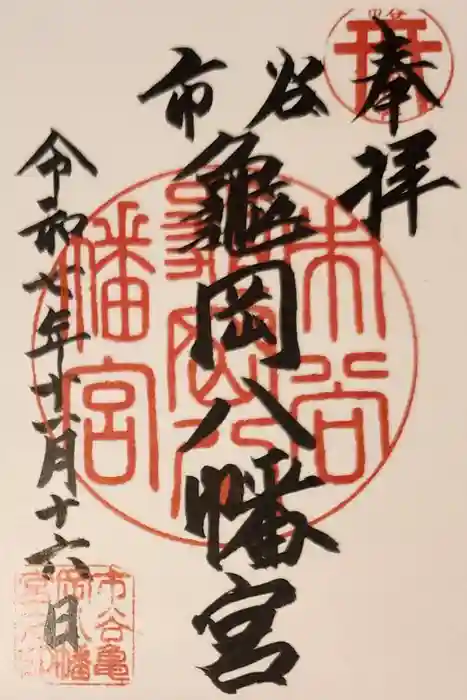 奉拝
市谷
龜岡八幡宮
令和七年十一月十六日
市谷
龜岡八
幡宮
市谷亀
岡八幡
宮